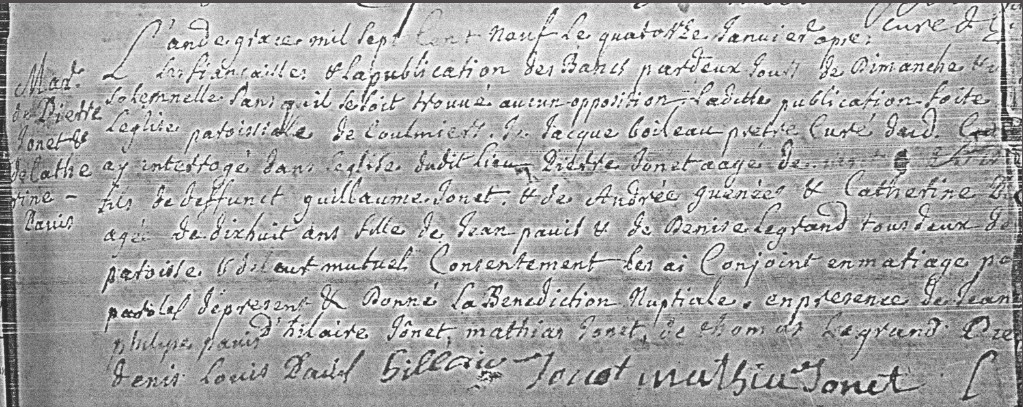 curé d
L'an de grace mil sept cent neuf Le quatorze Janvier apres
Les fiancailles & la publication des Bancs par deux Jours de Dimanche &
solemnelle sans quil se soit trouvué aucun opposition Laditte publication foite
L'eglise paroissialle de Coulmiers. Je Jacque boileau pretre Curé dud.
ay interrogé dans leglise dudit lieu Pierre Jonet aagé de
fils de deffunct guillaume Jonet. & de Andrée guenées & Catherine
agée de dixhuit ans fille de Jean pauis & de Denise Legrand tous deux de
paroisse & de leur mutuel Consentement les ai Conjoint en mariage
paroles de present & Donné la Benediction Nuptiale. en presence de Jean
philype pauis d'hilaire Jônet, mathias Jonet, de thomas Legrand
denis Louis Pauis hillaire Jonet mathieu Jonet
Mar.
de Pierre
Jonet &
de Cathe
rine -
Pauis